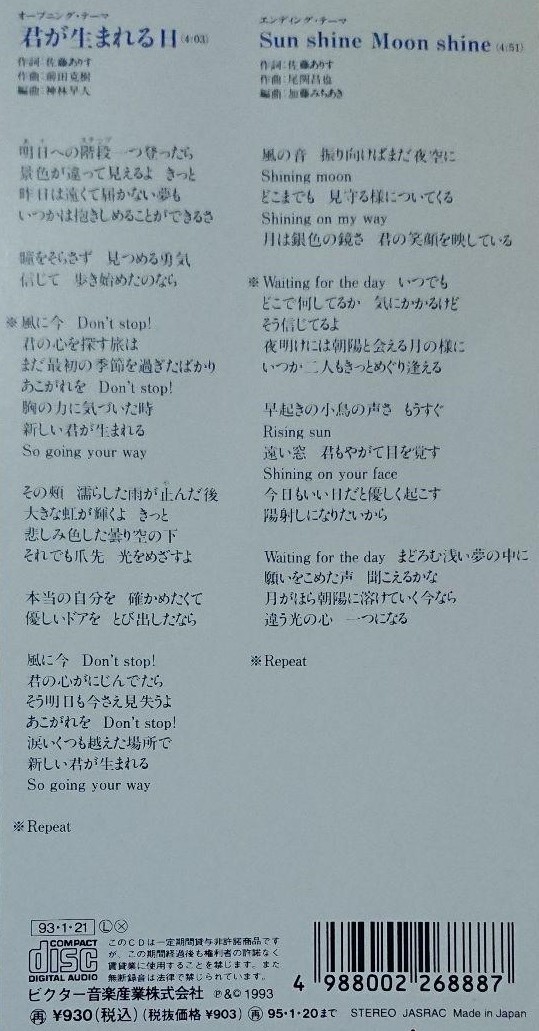 オープニング・テーマ
君が生まれる日(4:03)
作詞:佐藤ありす
作曲:前田克樹
編曲:神林早人
明日への階段一つ登ったら
景色が違って見えるよ きっと
昨日は遠くて届かない夢も
いつかは抱きしめることができるさ
瞳をそらさず 見つめる勇気
信じて 歩き始めたのなら
※風に今 Don't stop!
君の心を探す旅は
まだ最初の季節を過ぎたばかり
あこがれを Don't stop!
胸の力に気づいた時
新しい君が生まれる
So going your way
その頬 濡らした雨が止んだ後
大きな虹が輝くよ きっと
悲しみ色した曇り空の下
それでも爪先 光をめざすよ
本当の自分を 確かめたくて
優しいドアを とび出したなら
風に今 Don't stop!
君の心がにじんでたら
そう明日も今さえ見失うよ
あこがれを Don't stop!
涙いくつも越えた場所で
新しい君が生まれる
So going your way
※Repeat
エンディング・テーマ
Sun shine Moon shine(4:51)
作詞:佐藤ありす
作曲:尾関昌也
編曲:加藤みちあき
風の音 振り向けばまだ夜空に
Shining moon
どこまでも 見守る様についてくる
Shining on my way
月は銀色の鏡さ 君の笑顔を映している
※Waiting for the day いつでも
どこで何してるか 気にかかるけど
そう信じてるよ
夜明けには朝陽と会える月の様に
いつか二人もきっとめぐり逢える
早起きの小鳥の声さ もうすぐ
Rising sun
遠い窓 君もやがて目を覚す
Shining on your face
今日もいい日だと優しく起こす
陽射しになりたいから
Waiting for the day まどろむ浅い夢の中に
願いをこめた声 聞こえるかな
月がほら朝陽に溶けていく今なら
違う光の心 一つになる
※Repeat
93・1・21 Ⓛ Ⓧ
COMPACT
disc
DIGITAL AUDIO
このCDは一定期間貸与非許諾商品です
が、この期間経過後も権利者の許諾なく
賃貸業に使用することを禁じます。また
無断録音は法律で禁じられています。
ビクター音楽産業株式会社 ℗&© 1993
再 ¥930(税込)(税抜価格 ¥903) 再 95・1・20まで STEREO JASRAC Made in Japan
4 988002 268887